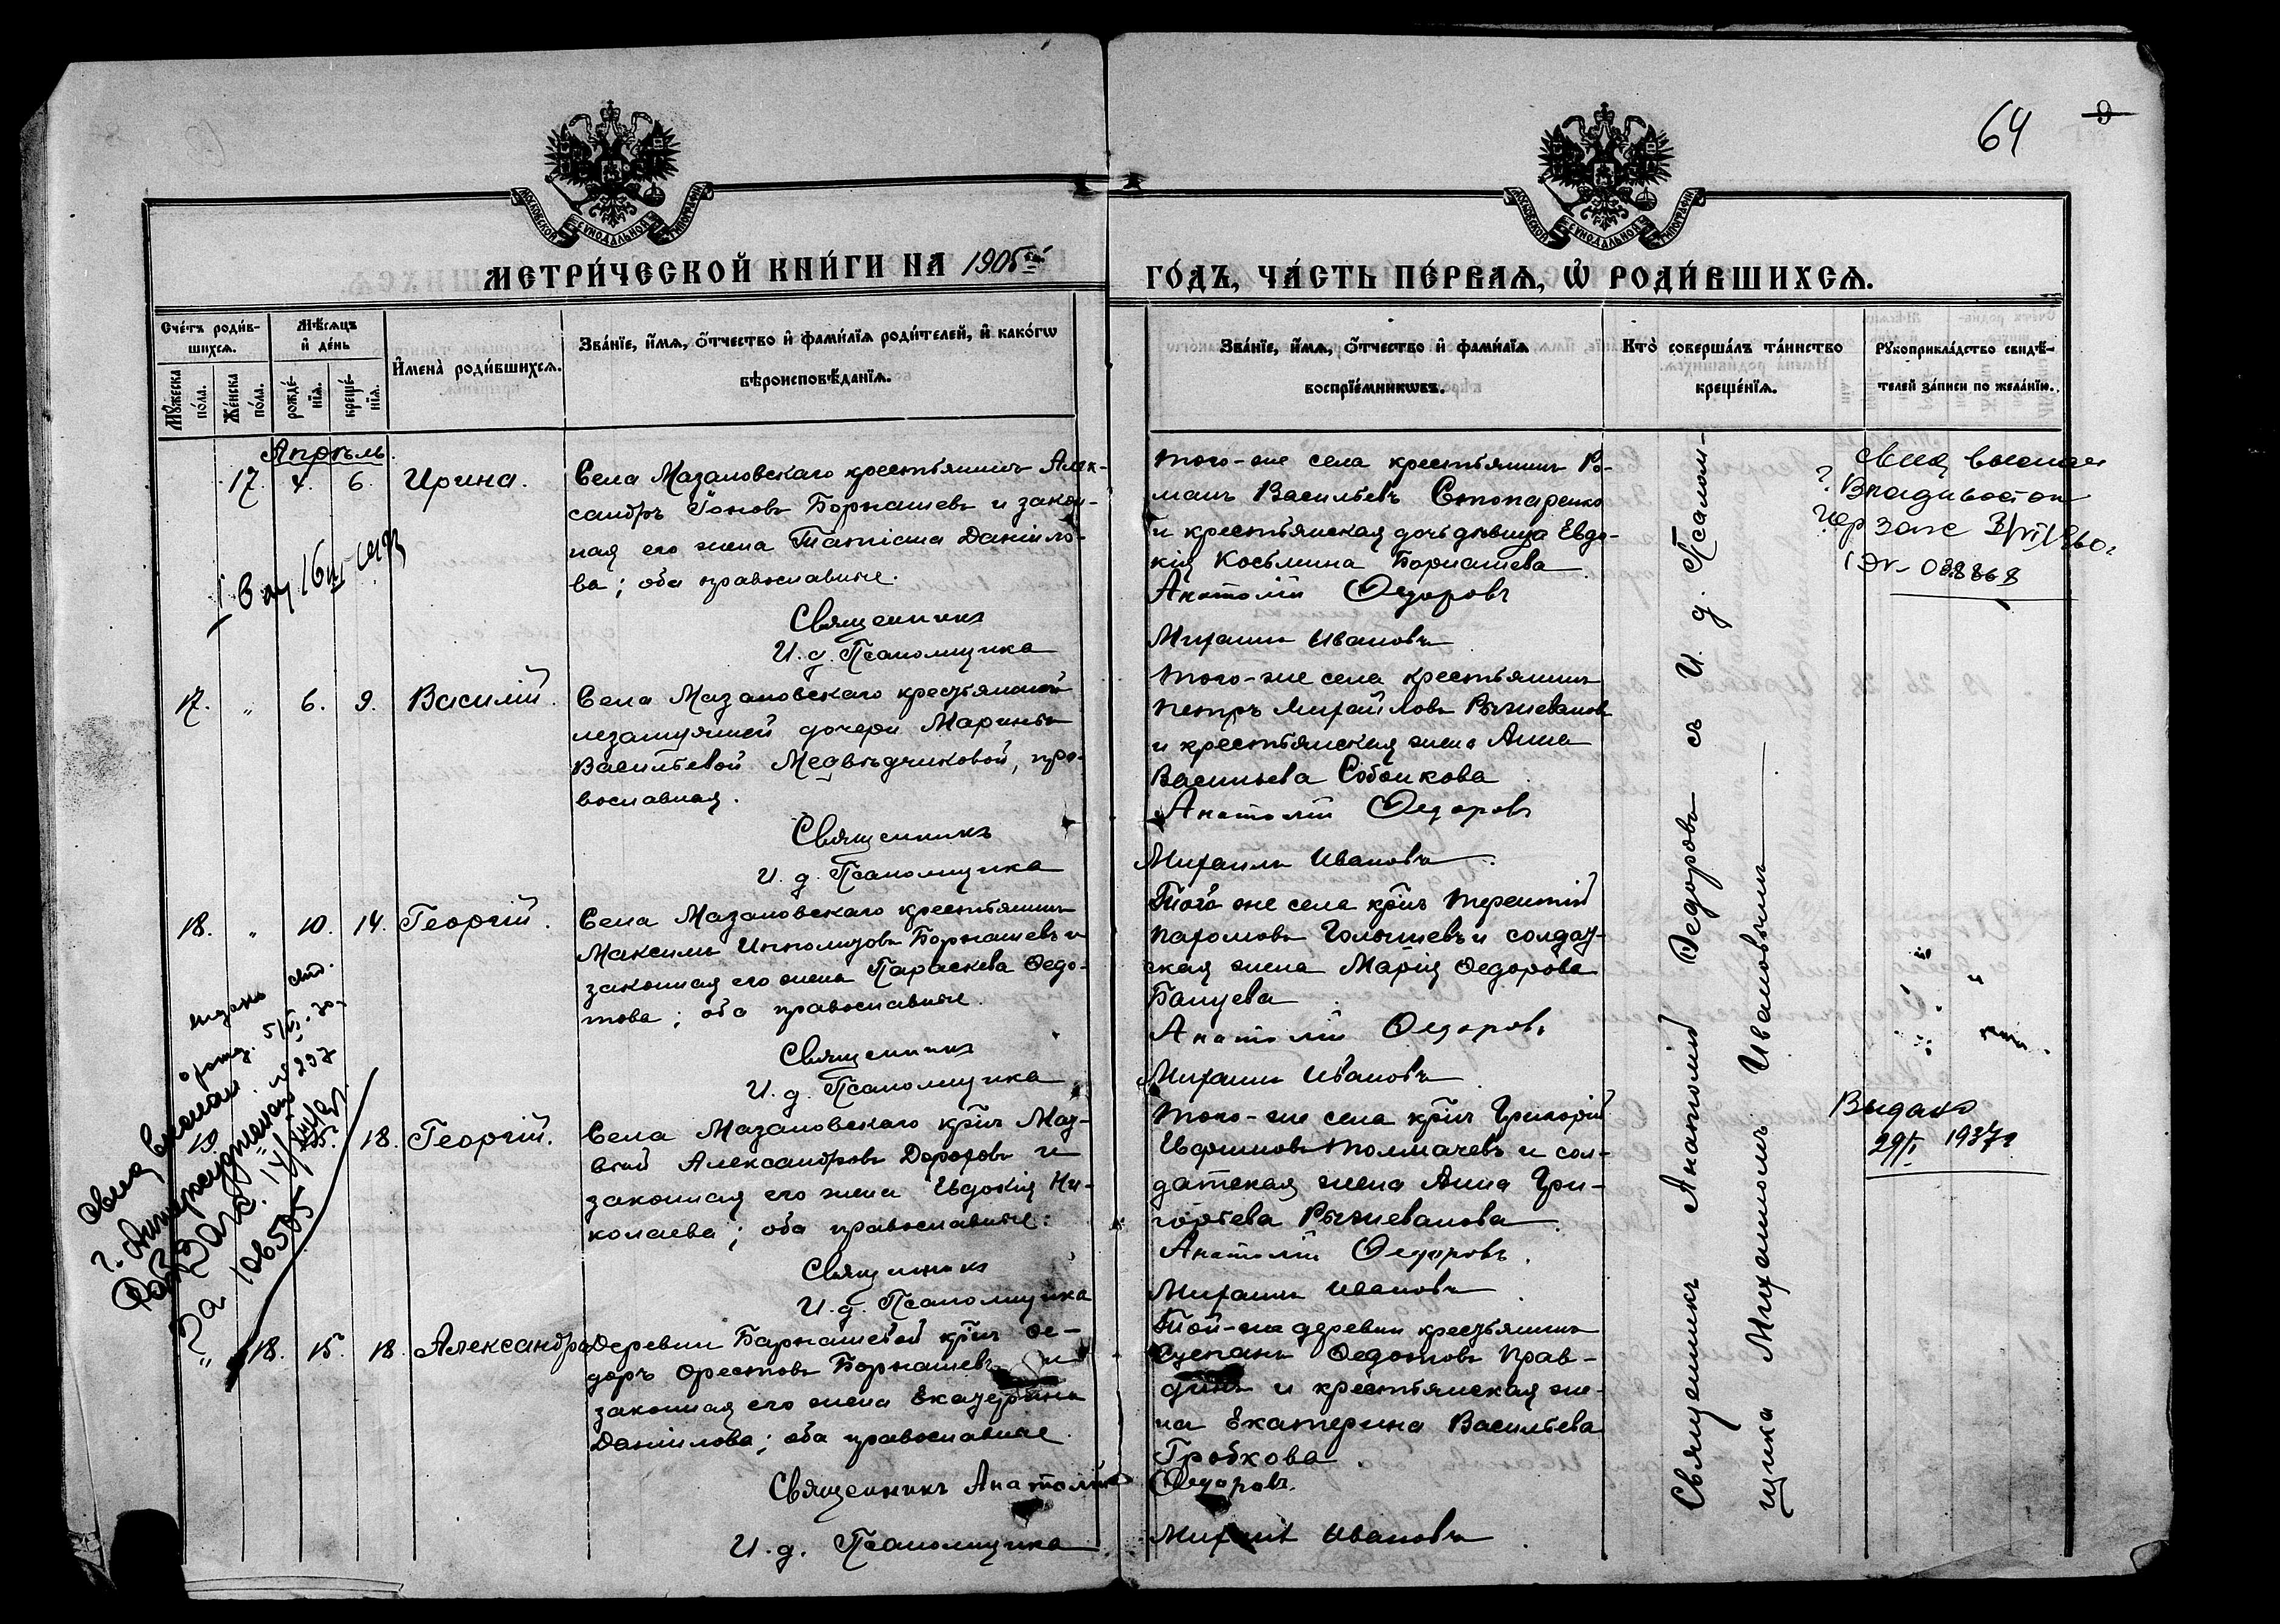 64 9
МОСКОВСКОЙ СѴНОДАЛЬНОЙ ТИПОГРАФІИ
МОСКОВСКОЙ СѴНОДАЛЬНОЙ ТИПОГРАФІИ
МЕТРИ́ЧЕСКОЙ КНИ́ГИ НА 1905
ГО́ДЪ, ЧА́СТЬ ПЕ́РВАѦ, Ѿ РОДИ́ВШИХСѦ.
Сче́тъ роди́в-
шихсѧ.
Мꙋ́жеска
по́ла.
Же́нска
по́ла.
Мѣ́сѧцъ
и҆ де́нь
рожде́-
нїѧ.
креще́-
нїѧ.
И҆мена̀ роди́вшихсѧ.
Зва́нїе, и҆́мѧ, ѻ҆́тчество и҆ фами́лїѧ роди́телей, и҆ како́гѡ
вѣроисповѣ́данїѧ.
Зва́нїе, и҆́мѧ, ѻ҆́тчество и҆ фами́лїѧ
воспрїе́мникѡвъ.
Кто̀ соверша́лъ та́инство
креще́нїѧ.
Рꙋкоприкла́дство свидѣ́-
телей за́писи по жела́нїю.
Апрѣль.
17. 4. 6. Ирина.
Села Мазановскаго крестьянинъ Алек-
сандръ Іоновъ Борнашевъ и закон-
ная его жена Татіана Даніило-
ва; оба православные.
Священникъ
И. д. Псаломщика
того-же села крестьянинъ Ро-
манъ Васильевъ Стопаренко
и крестьянская дочь дѣвица Евдо-
кія Косьмина Борнашева
Анатолій Ѳедоровъ
Михаилъ Ивановъ
Владивосток
088868
17. " 6. 9. Василій.
Села Мазановскаго крестьянской
незамужней дочери Марины
Васильевой Медвѣдчиковой, пра-
вославная.
Священникъ
И. д. Псаломщика
того-же села крестьянинъ
Петръ Михайловъ Рыжевановъ
и крестьянская жена Анна
Васильева Собойкова
Анатолій Ѳедоровъ
Михаилъ Ивановъ
18. " 10. 14. Георгій.
Села Мазановскаго крестьянинъ
Максимъ Ипполитовъ Борнашевъ и
законная его жена Параскева Ѳедо-
това; оба православные.
Священникъ
И. д. Псаломщика
Того же села кр҃нъ Терентій
Пахомовъ Голышевъ и солдат-
ская жена Марія Ѳедорова
Банцева
Анатолій Ѳедоровъ
Михаилъ Ивановъ
19. " 15. 18. Георгій.
Села Мазановскаго кр҃нъ Мат-
вѣй Александровъ Дороховъ и
законная его жена Евдокія Ни-
колаева; оба православные.
Священникъ
И. д. Псаломщика
того-же села кр҃нъ Григорій
Ивановъ Толмачевъ и сол-
датская жена Анна Гри-
горьева Рыжеванова
Анатолій Ѳедоровъ.
Михаилъ Ивановъ
Выдано
29/I 1937г
" 18. 15. 18. Александра
Деревни Барнашевой кр҃нъ Ѳе-
доръ Орестовъ Борнашевъ и
законная его жена Екатерина
Даніилова; оба православные.
Священникъ Анатолій
И. д. Псаломщика
Той-же деревни крестьянинъ
Степанъ Ѳедотовъ Прав-
динъ и крестьянская же-
на Екатерина Васильева
Гробкова
Ѳедоровъ.
Михаилъ Ивановъ
Священникъ Анатолій Ѳедоровъ съ И. д. Псалом-
щика Михаиломъ Ивановымъ